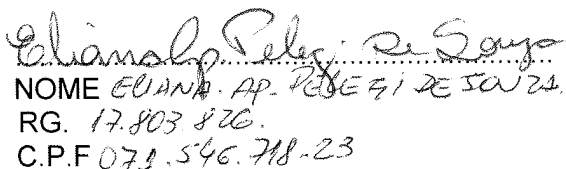 Eliana Ap. Pelegi de Souza
NOME ELIANA. AP. PELEGI DE SOUZA.
RG. 17.803 826.
C.P.F 071.546.718-23